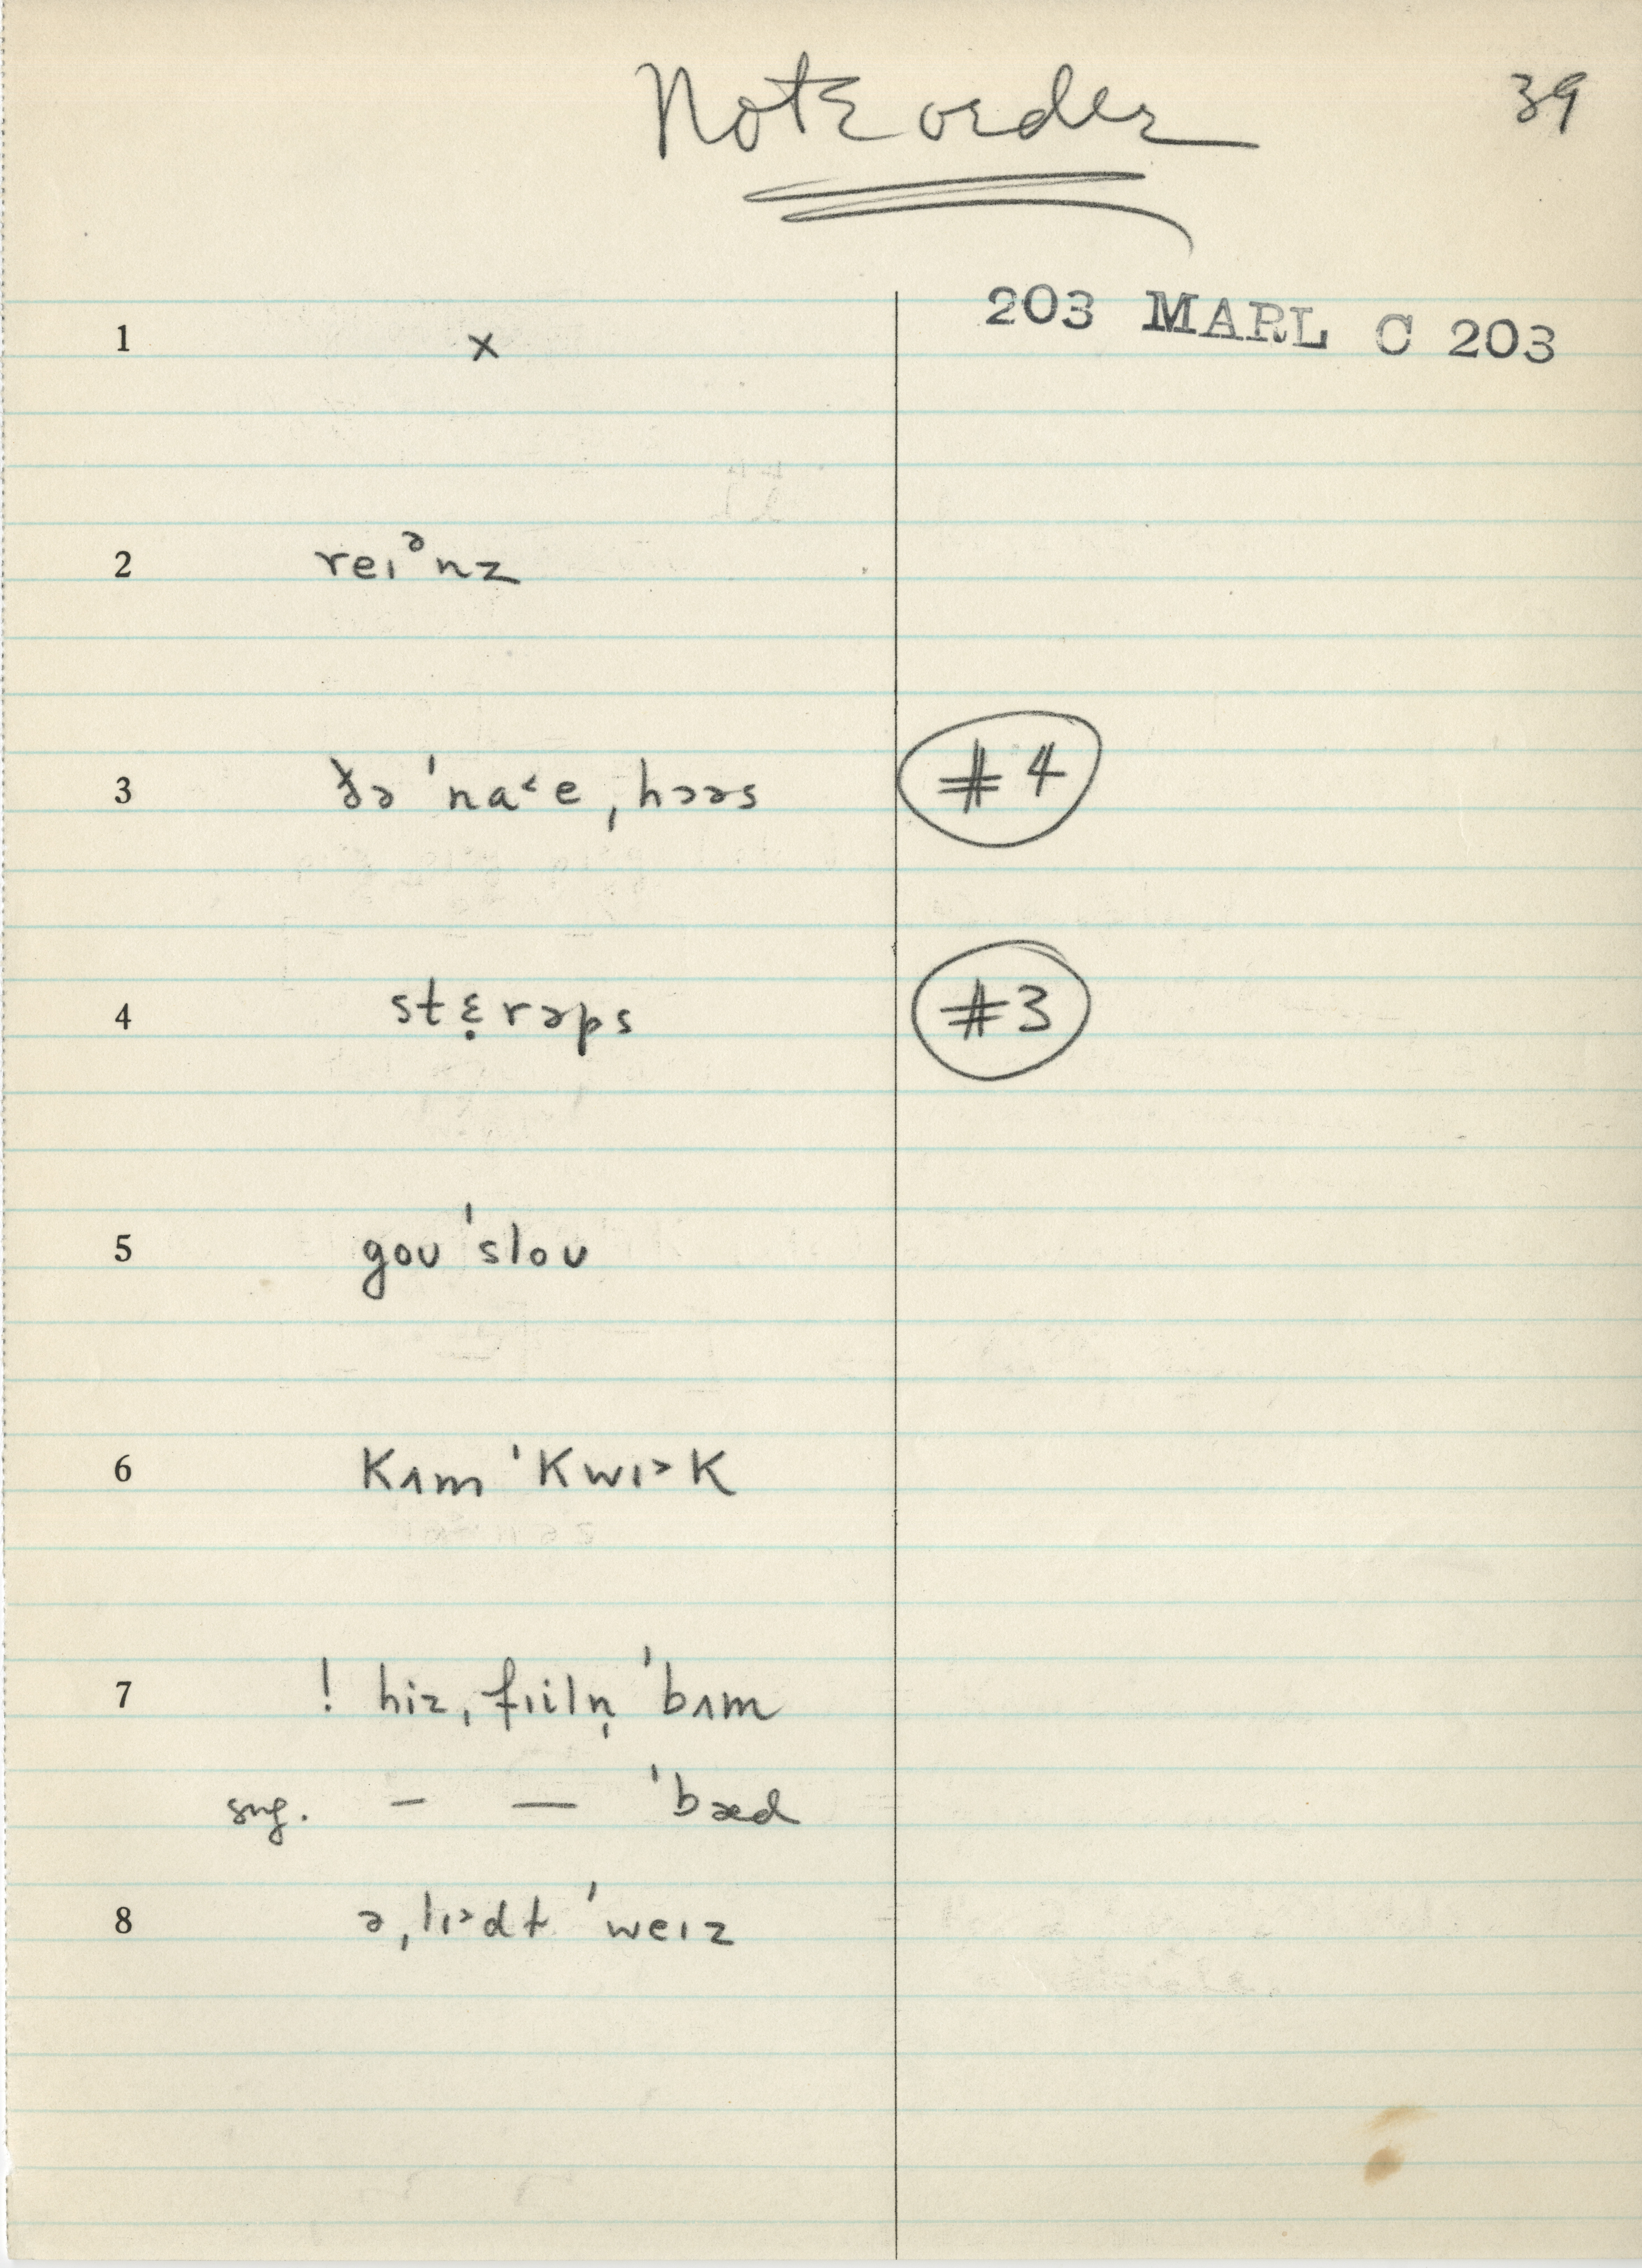 Note order 39
203 MARL C 203
1 x
2 reɪᵊnz
3 ðə ˈna˂e ˌhɔəs #4
4 stɛ̣rəps #3
5 goʊ ˈsloʊ
6 Kʌm ˈKwɪ˃K
7 ! hiz ˌfɪiln̩ ˈbʌm
sug. – — ˈbæd
8 ə ˌlɪ˃dt ˈweɪz